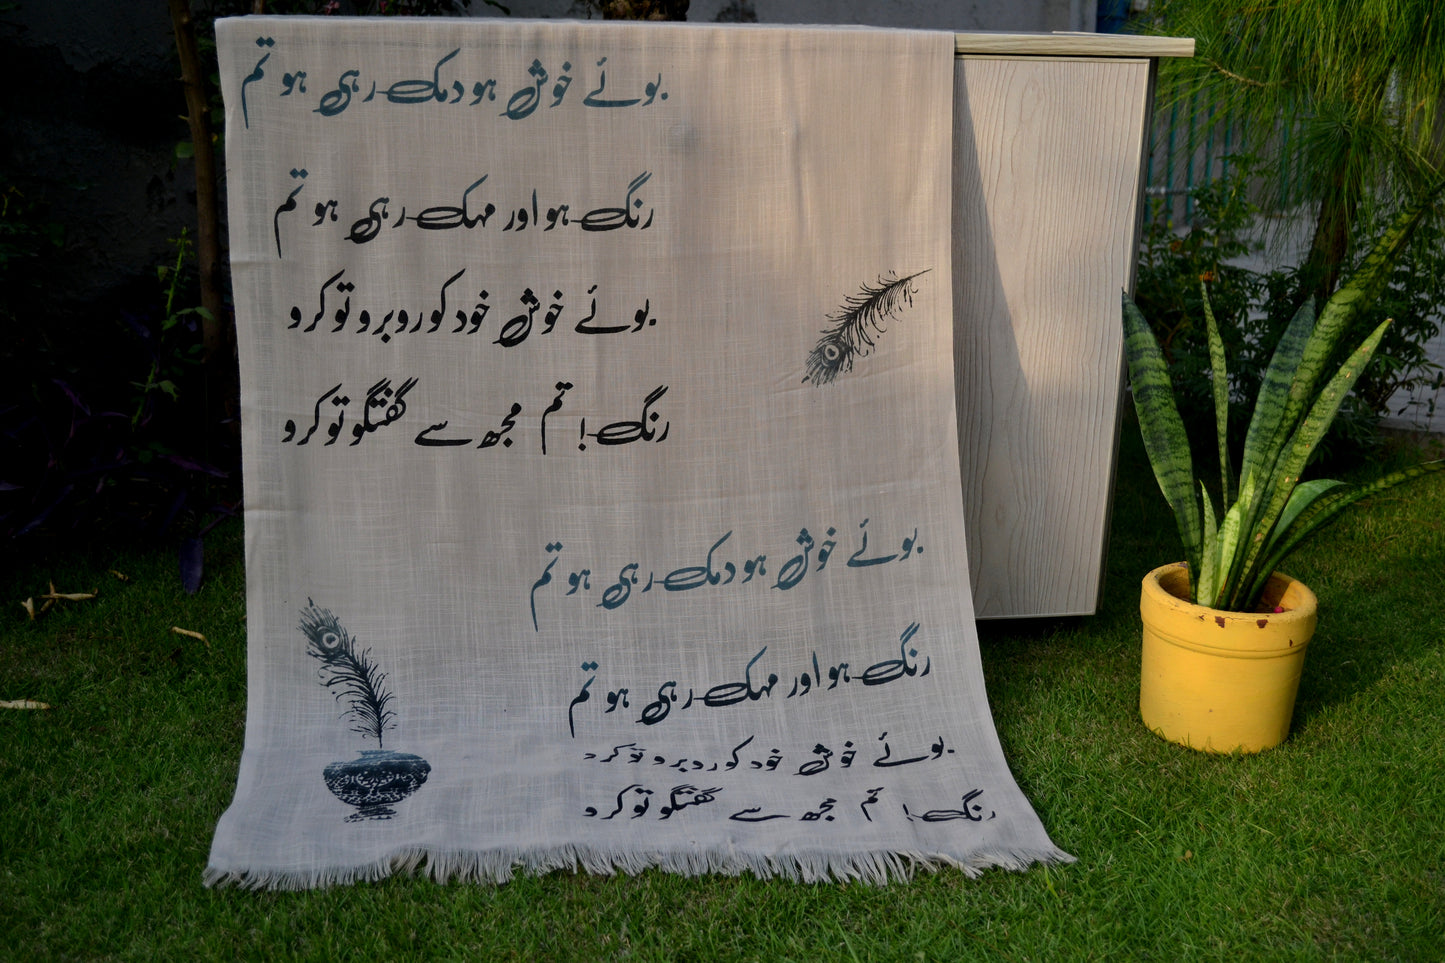 بوئے خوش ہو دمک رہی ہو تم
رنگ ہو اور مہک رہی ہو تم
بوئے خوش خود کو روبرو تو کرو
رنگ! تم مجھ سے گفتگو تو کرو
بوئے خوش ہو دمک رہی ہو تم
رنگ ہو اور مہک رہی ہو تم
بوئے خوش خود کو روبرو تو کرو
رنگ! تم مجھ سے گفتگو تو کرو